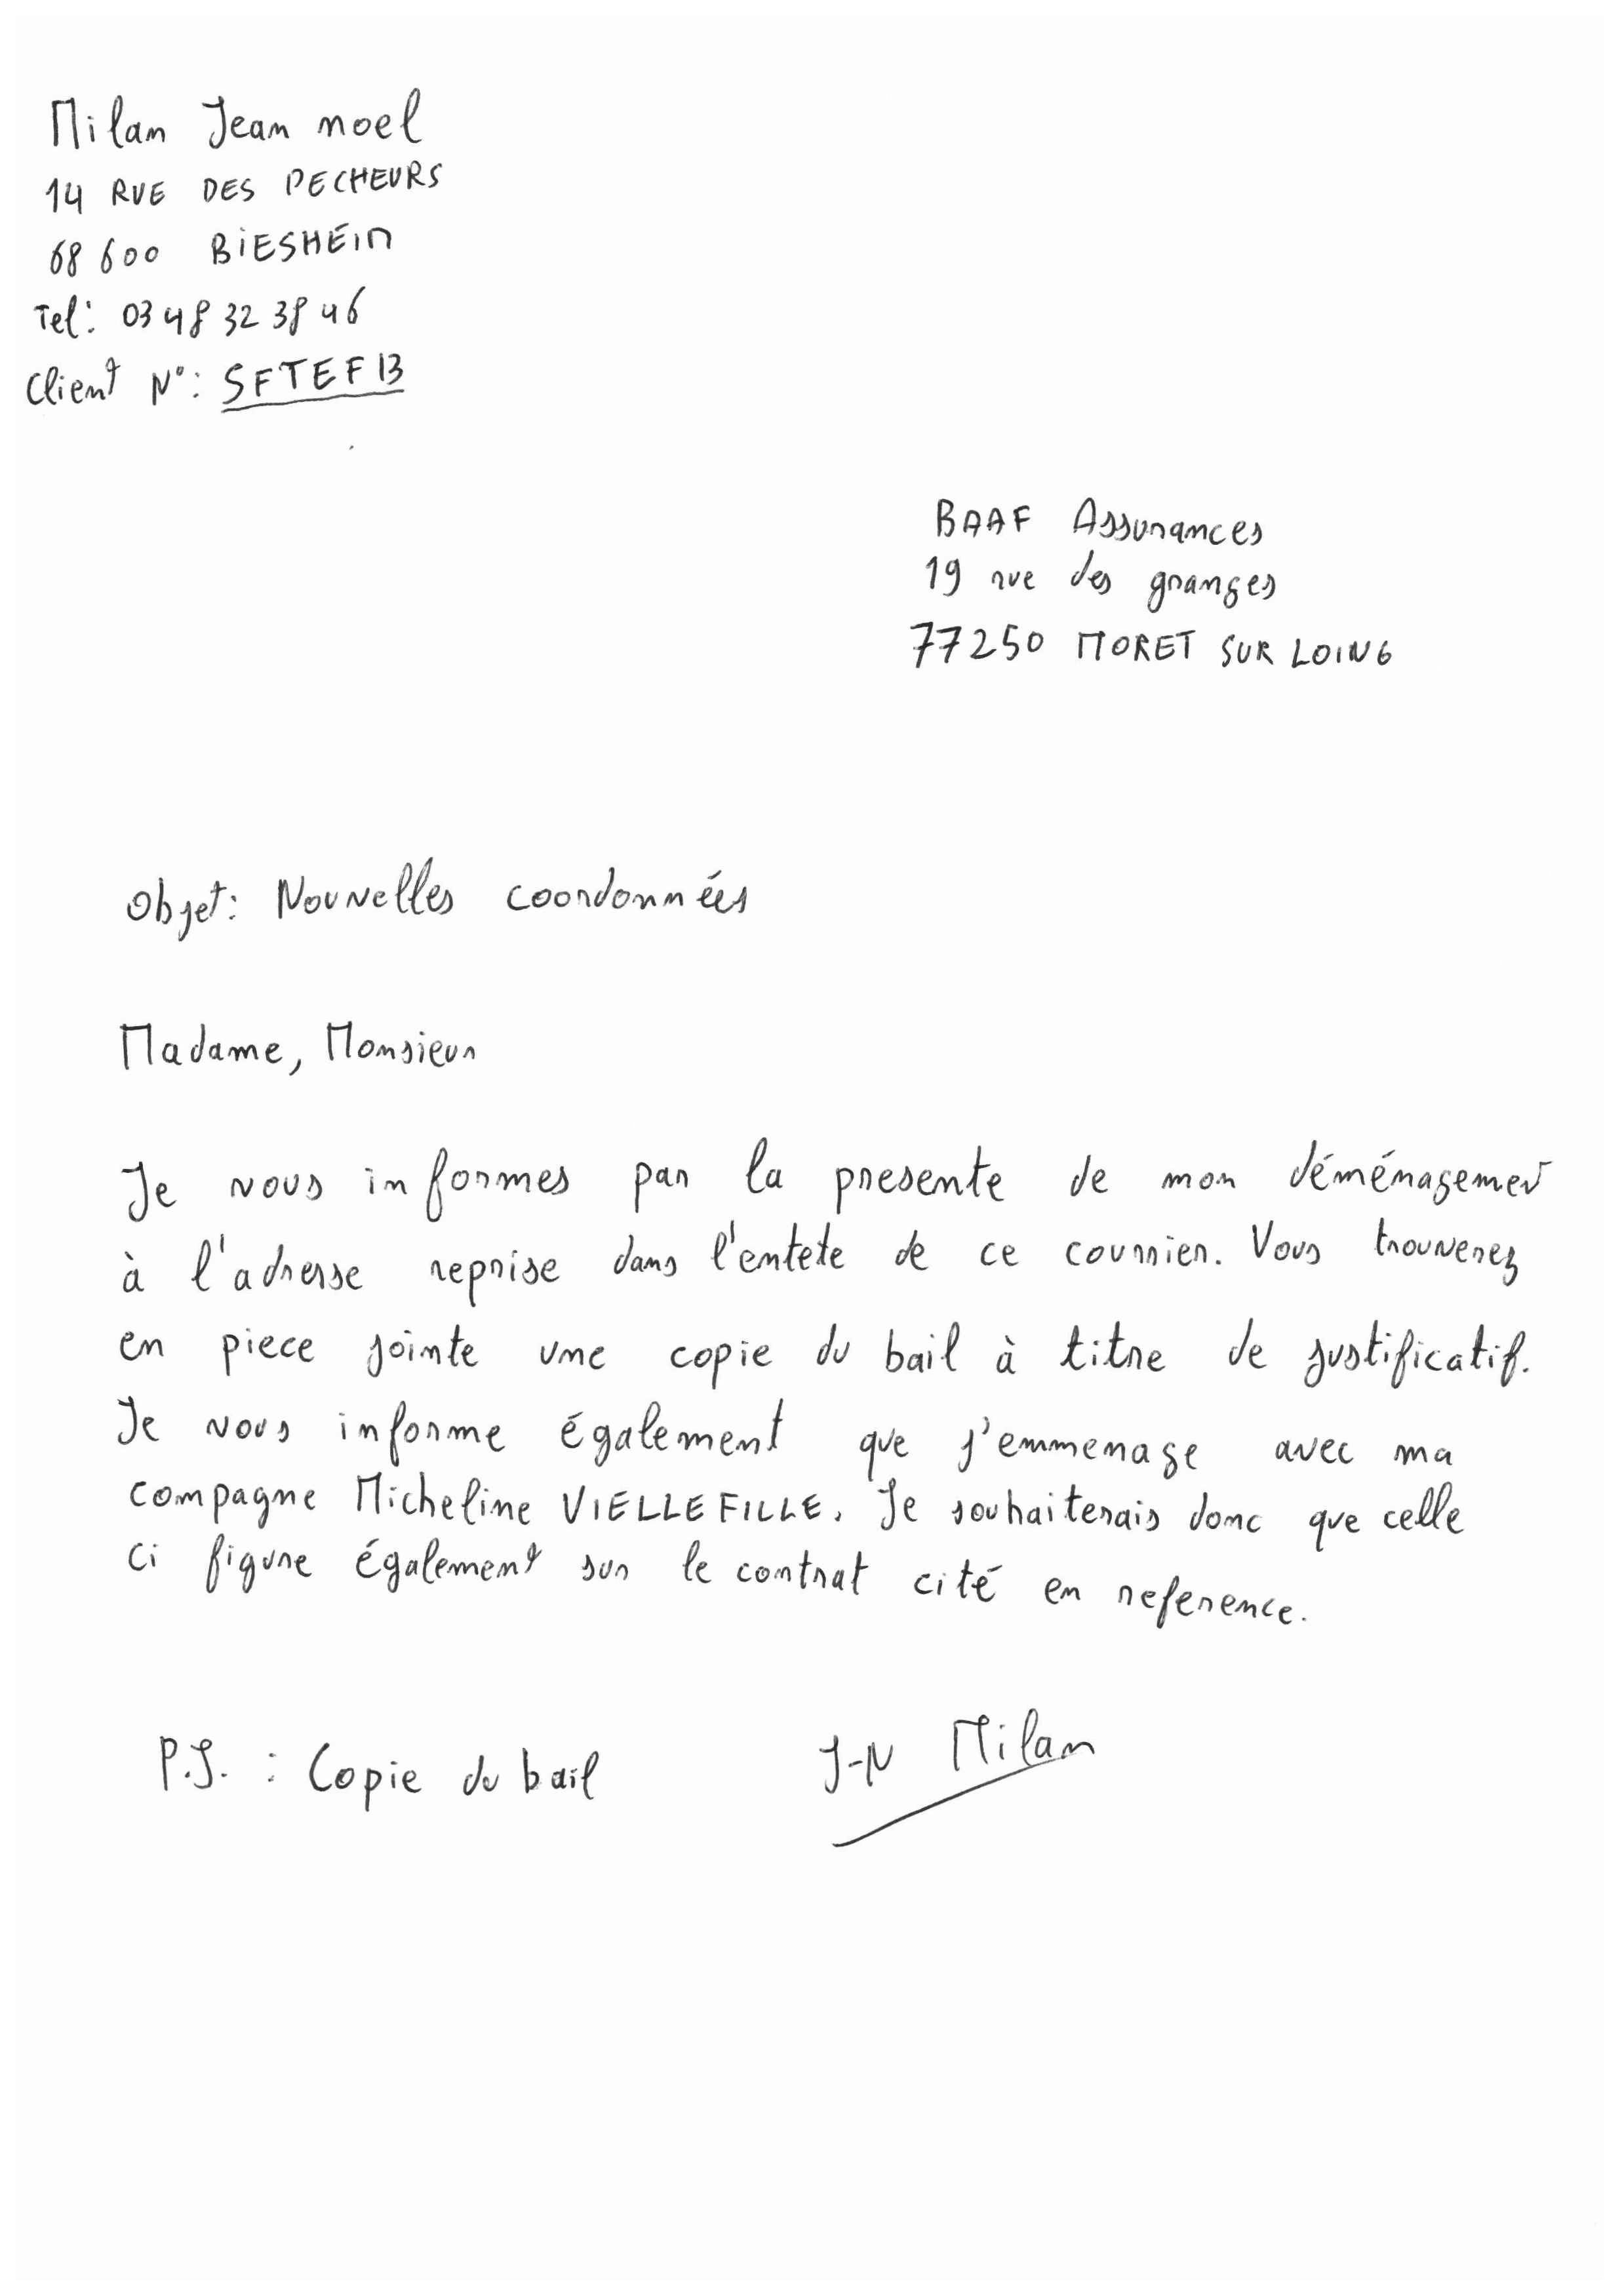 Milan Jean noel
14 RUE DES PECHEURS
68 600 BiESHEiM
Tel: 03 48 32 38 46
Client N°: SFTEF13
BAAF Assurances
19 rue des granges
77250 MORET SUR LOING
Objet: Nouvelles coordonnées
Madame, Monsieur
Je vous informes par la presente de mon déménagement
à l'adresse reprise dans l'entete de ce courrier. Vous trouverez
en piece jointe une copie du bail à titre de justificatif.
Je vous informe également que j'emmenage avec ma
compagne Micheline VIELLEFILLE. Je souhaiterais donc que celle
ci figure également sur le contrat cité en reference.
P.J. : Copie du bail
J-N Milan